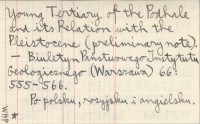 Young Tertiary of the Podhale
and its Relation with the
Pleistocene (preliminary note).
— Biuletyn Państwowego Instytutu
Geologicznego (Warszawa) 66:
555-566.
Po polsku, rosyjsku i angielsku.
WHP
*